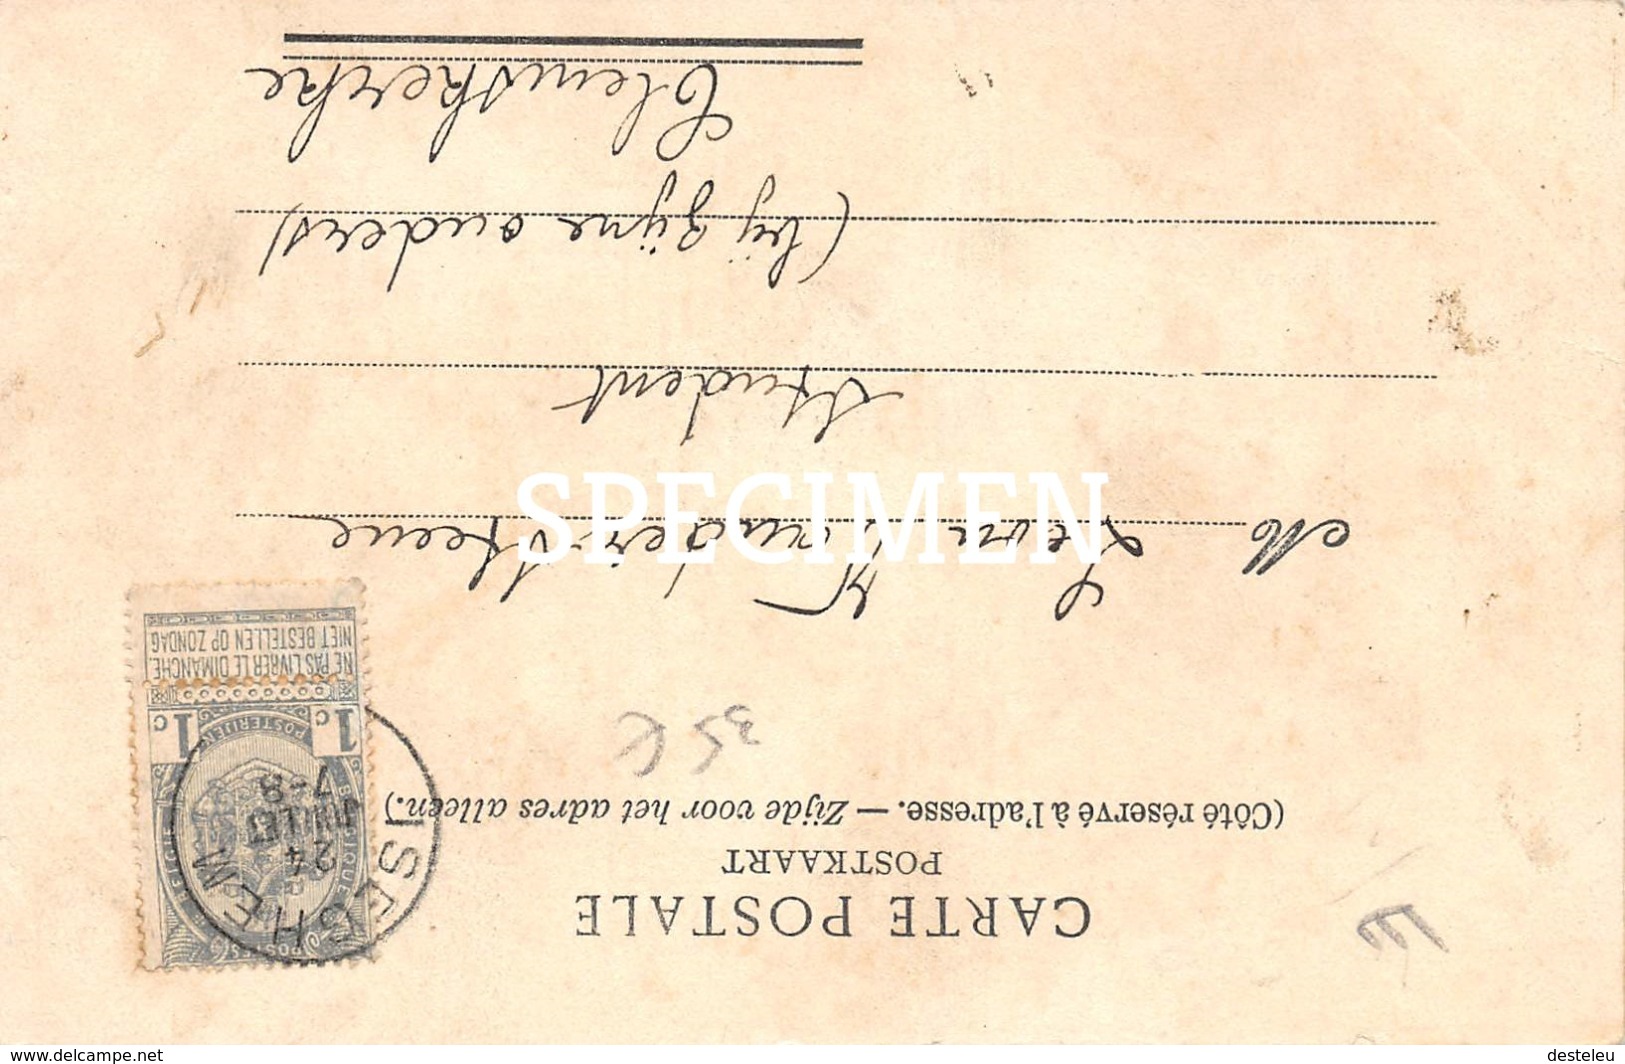 CARTE POSTALE
POSTKAART
(Côté réservé à l'adresse. — Zijde voor het adres alleen.)
35 €
M Leon Vandersteene
student
(bij zijne ouders)
Clemskerke
POSTES
BELGIQUE BELGIË
POSTERIJEN
1c 1c
NE PAS LIVRER LE DIMANCHE.
NIET BESTELLEN OP ZONDAG
ISEGHEM
24
JUILLET
7-8
SPECIMEN
www.delcampe.net
desteleu